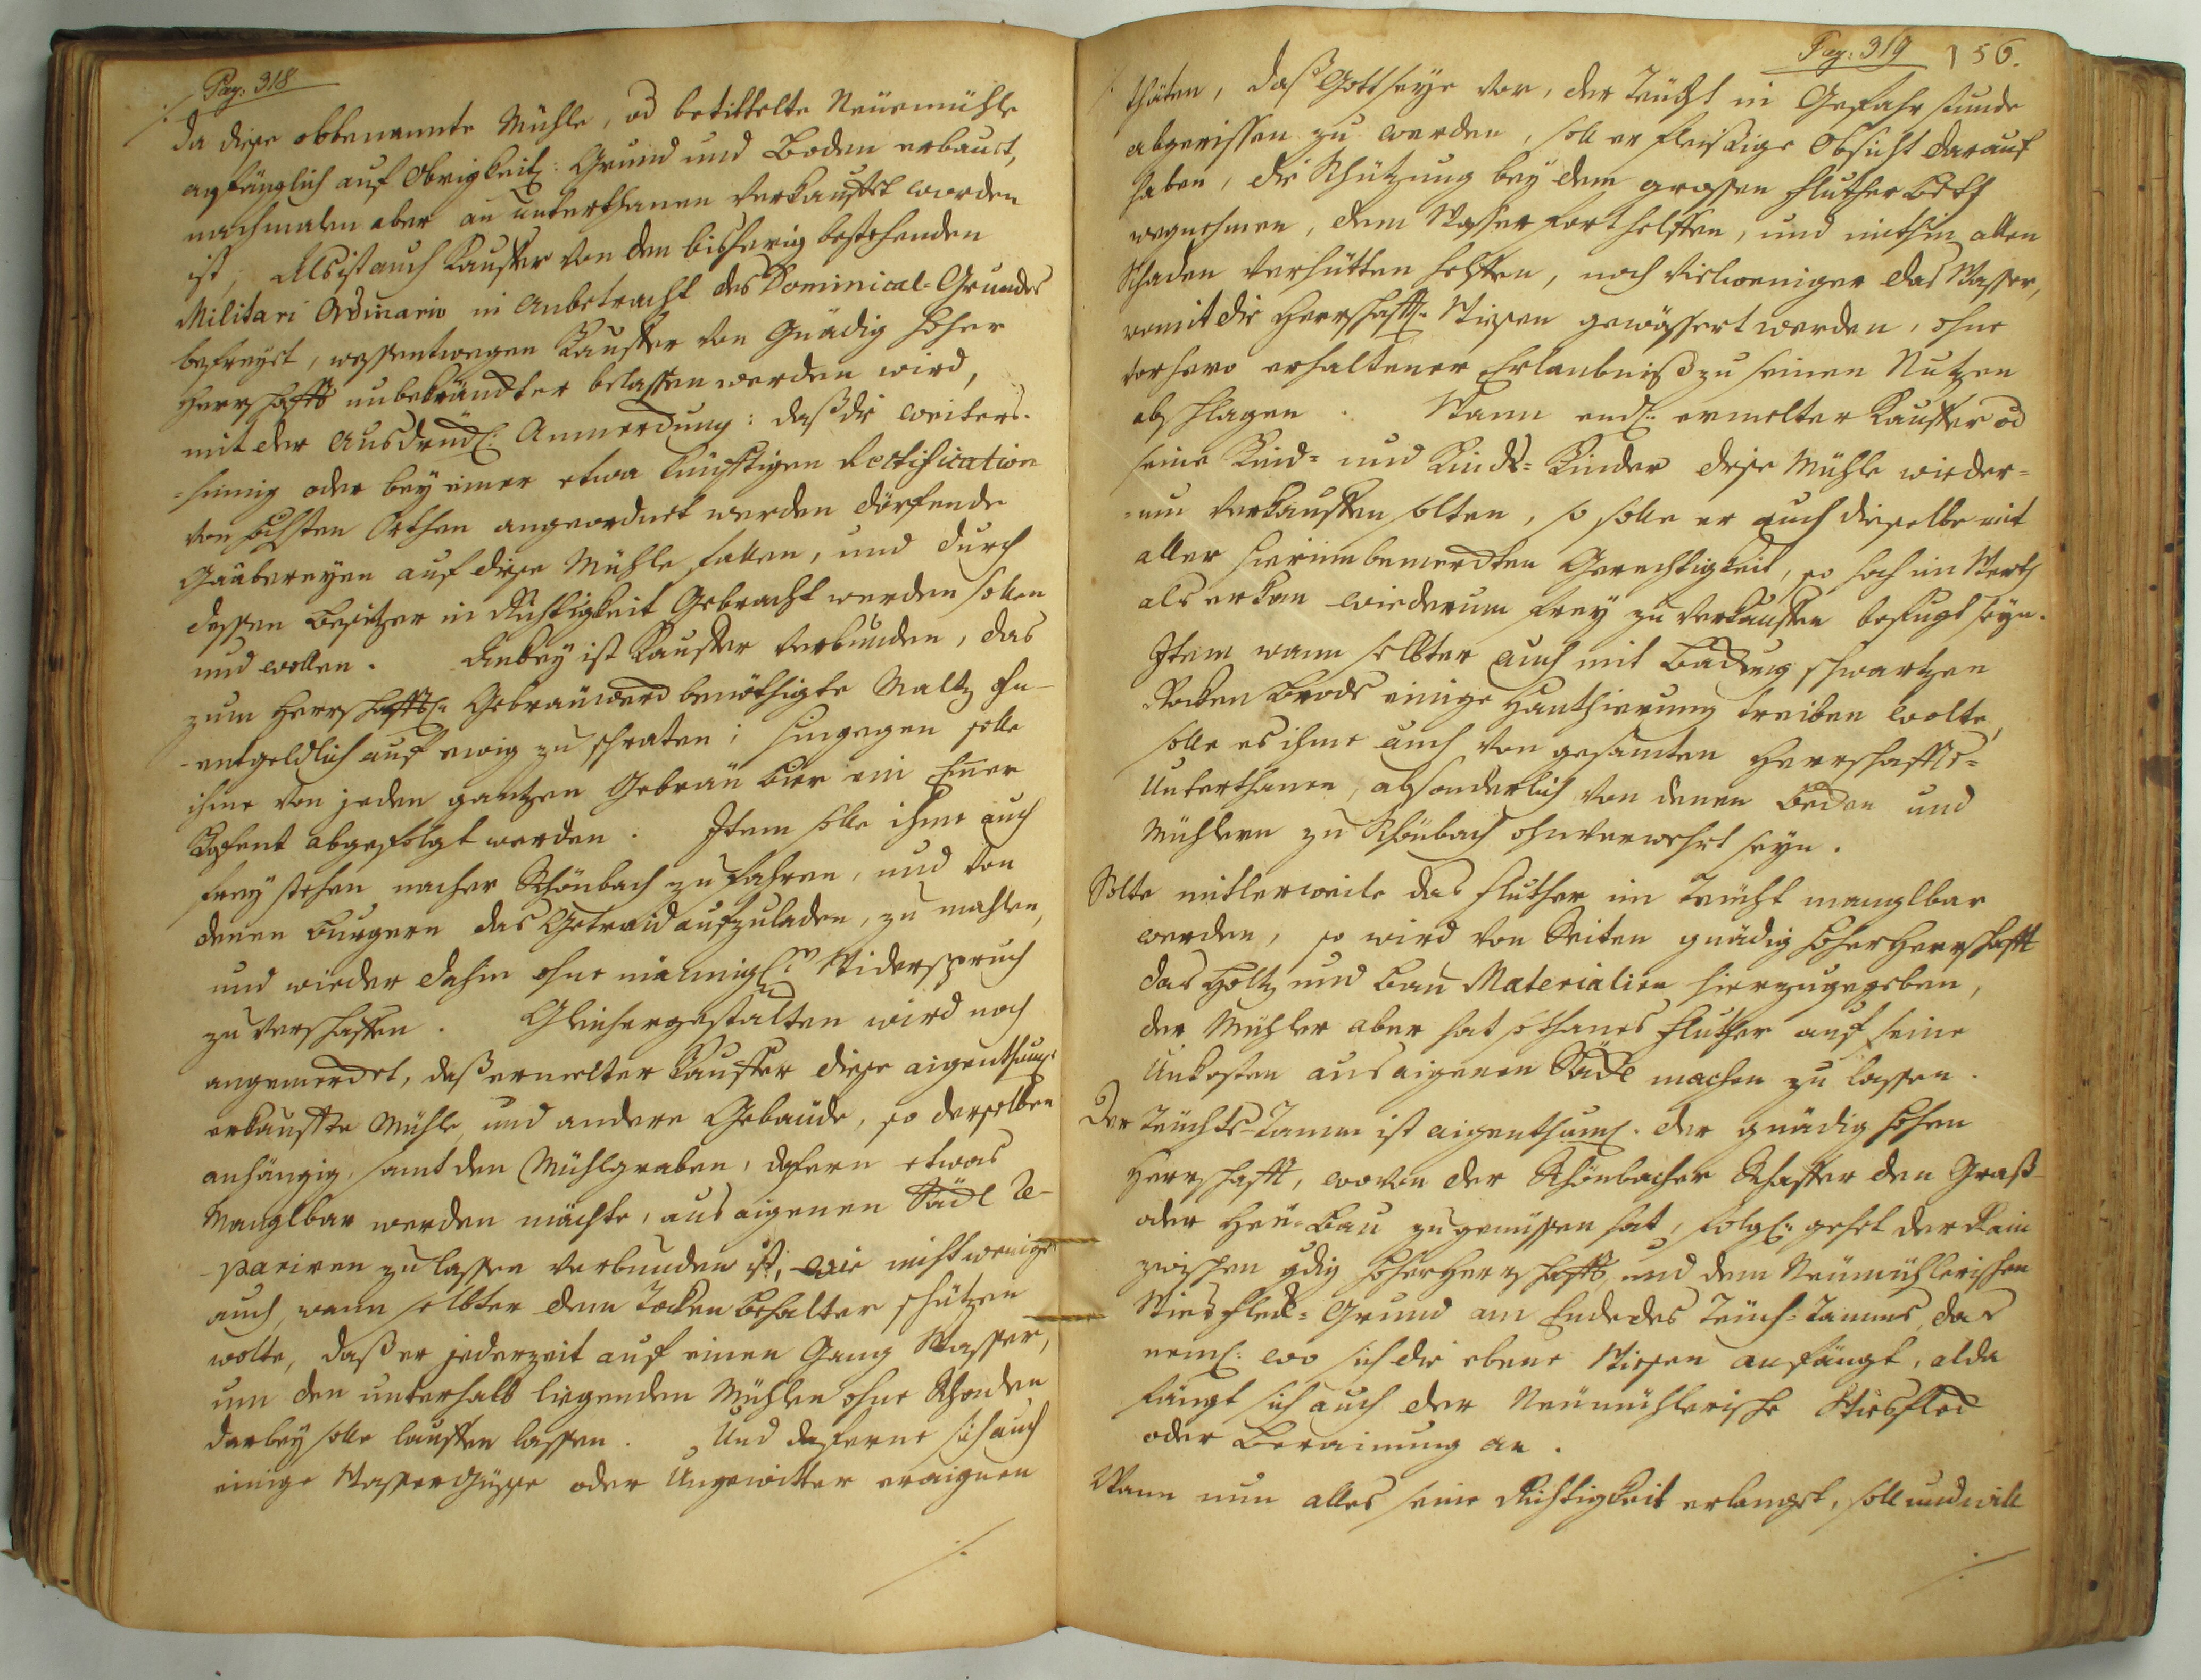 Pag: 318
Da diese obbenannte Mühle, od betittelte Neüemühle
anfänglich auf Obrigkeitl: Grund und Boden erbauet,
nachmalen aber an unterthanen verkaufft worden
ist, Als ist auch Kauffer von den bisherig bestehenden
Militari Ordinario in anbetracht des Dominical-Grundes
befreyet, wessentwegen Kauffer von Gnädig hoher
Herrschafft unbekränckter belassen werden wird,
mit der ausdrückl: Anmerckung: daß die weiters-
=hinnig oder bey einer etwa künfftigen Rectification
von höchsten Orthen angeordnet werden dörfende
Gaabereyen auf diese Mühle fallen, und durch
dessen Besitzer in Richtigkeit Gebracht werden sollen
und wollen. Anbey ist Kauffer verbunden, das
zum Herrschafftl: Gebräuwerck benöthigte Maltz ohn-
-entgeldlich auf ewig zu schroten; hingegen solle
ihme von jeden gantzen Gebräu Bier ein Emer
Kofent abgefolgt werden. Item solle ihme auch
frey stehen nacher Schönbach zu fahren, und von
denen Burgern das Getraid aufzuladen, zu mahlen,
und wieder dahin ohne männigl: Widerspruch
zu verschaffen. Gleichergestalten wird noch
angemercket, daß ermelter Kauffer diese aigenthuml:
erkauffte Mühle, und andere Gebäude, so derselben
anhängig, samt den Mühlgraben, dofern etwas
Manglbar werden möchte, aus aigenen Säckl Re-
-pariren zu lassen verbunden ist, wie nicht weniger
auch, wann selbter dem Tocken behalter schützen
wolte, daß er jederzeit auf einen Gang Wasser,
um den unterhalb liegenden Mühlen ohne Schaden
darbey solle lauffen lassen. Und daferne sich auch
einige Wasser Güsse oder Ungewitter eraignen
./.
Pag: 319 156.
./. thäten, daß Gott seye vor, der Teücht in Gefahr stunde
abgerissen zu werden, soll er fleissige Obsicht darauf
haben, die Schützung bey dem grossen Fluther Beth
wegnehmen, dem Wasser forthelffen, und mithin allen
Schaden verhütten helffen, noch vielweniger das Wasser,
womit die Herrschafftl: Wiesen gewässert werden, ohne
vorhero erhaltener Erlaubniß zu seinen Nutzen
abschlagen. Wann endl: ermelter Kauffer od
seine Kind- und Kinds-Kinder diese Mühle wieder-
=um verkauffen solten, so solle er auch dieselbe mit
aller hierinn bemerckten Gerechtigkeit, so hoch im Werth
als er kan wiederum frey zu verkauffen befugt seyn.
Item wann selbter auch mit Backung schwartzen
Rocken Brods einige Hanthierung treiben wolte,
solle es ihme auch von gesamten Herrschaffts-
Unterthanen, absonderlich von denen Becken und
Mühlern zu Schönbach ohnverwehrt seyn.
Solte mitlerweile das Fluther im Teücht manglbar
werden, so wird von Seiten gnädig hoher Herrschafft
das Holtz und Bau Materialien hierzugegeben,
der Mühler aber hat sothanes Fluther auf seine
Unkosten aus aigenen Säckl machen zu lassen.
Der Teüchts-Tamm ist aigenthuml: der gnädig hohen
Herrschafft, wovon der Schönbacher Schaffer den Graß-
oder Heu-Bau zu genüssen hat, folgl: gehet der Rain
zwischen gdig hoher Herrschafft, und dem Neümühlerischen
Wiesfleck-Grund am Ende des Teüch-Tamms, das
neml: wo sich die ebene Wiesen anfängt, alda
fängt sich auch der Neümühlerische Wiesfleck
oder Berainung an.
Wann nun alles seine Richtigkeit erlanget, soll und will
./.